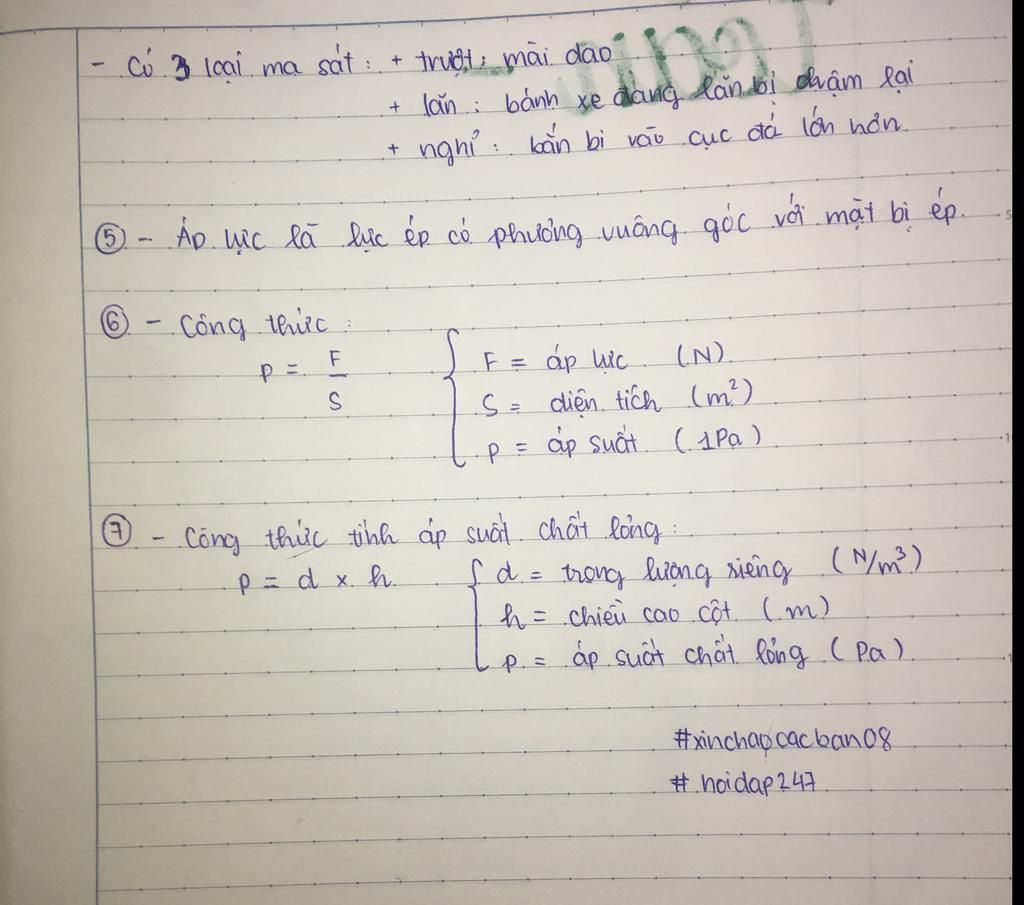 - Có 3 loại ma sát : + trượt : mài dao
+ lăn : bánh xe đang lăn bị chậm lại
+ nghỉ : bắn bi vào cục đá lớn hơn.
⑤ - Áp lực là lực ép có phương vuông góc với mặt bị ép.
⑥ - Công thức :
p = F/S { F = áp lực (N).
S = diện tích (m²)
p = áp suất (1Pa)
⑦ - Công thức tính áp suất chất lỏng :
p = d x h. { d = trọng lượng riêng (N/m³)
h = chiều cao cột (m)
p = áp suất chất lỏng (Pa).
#xinchaocacban08
# hoidap247